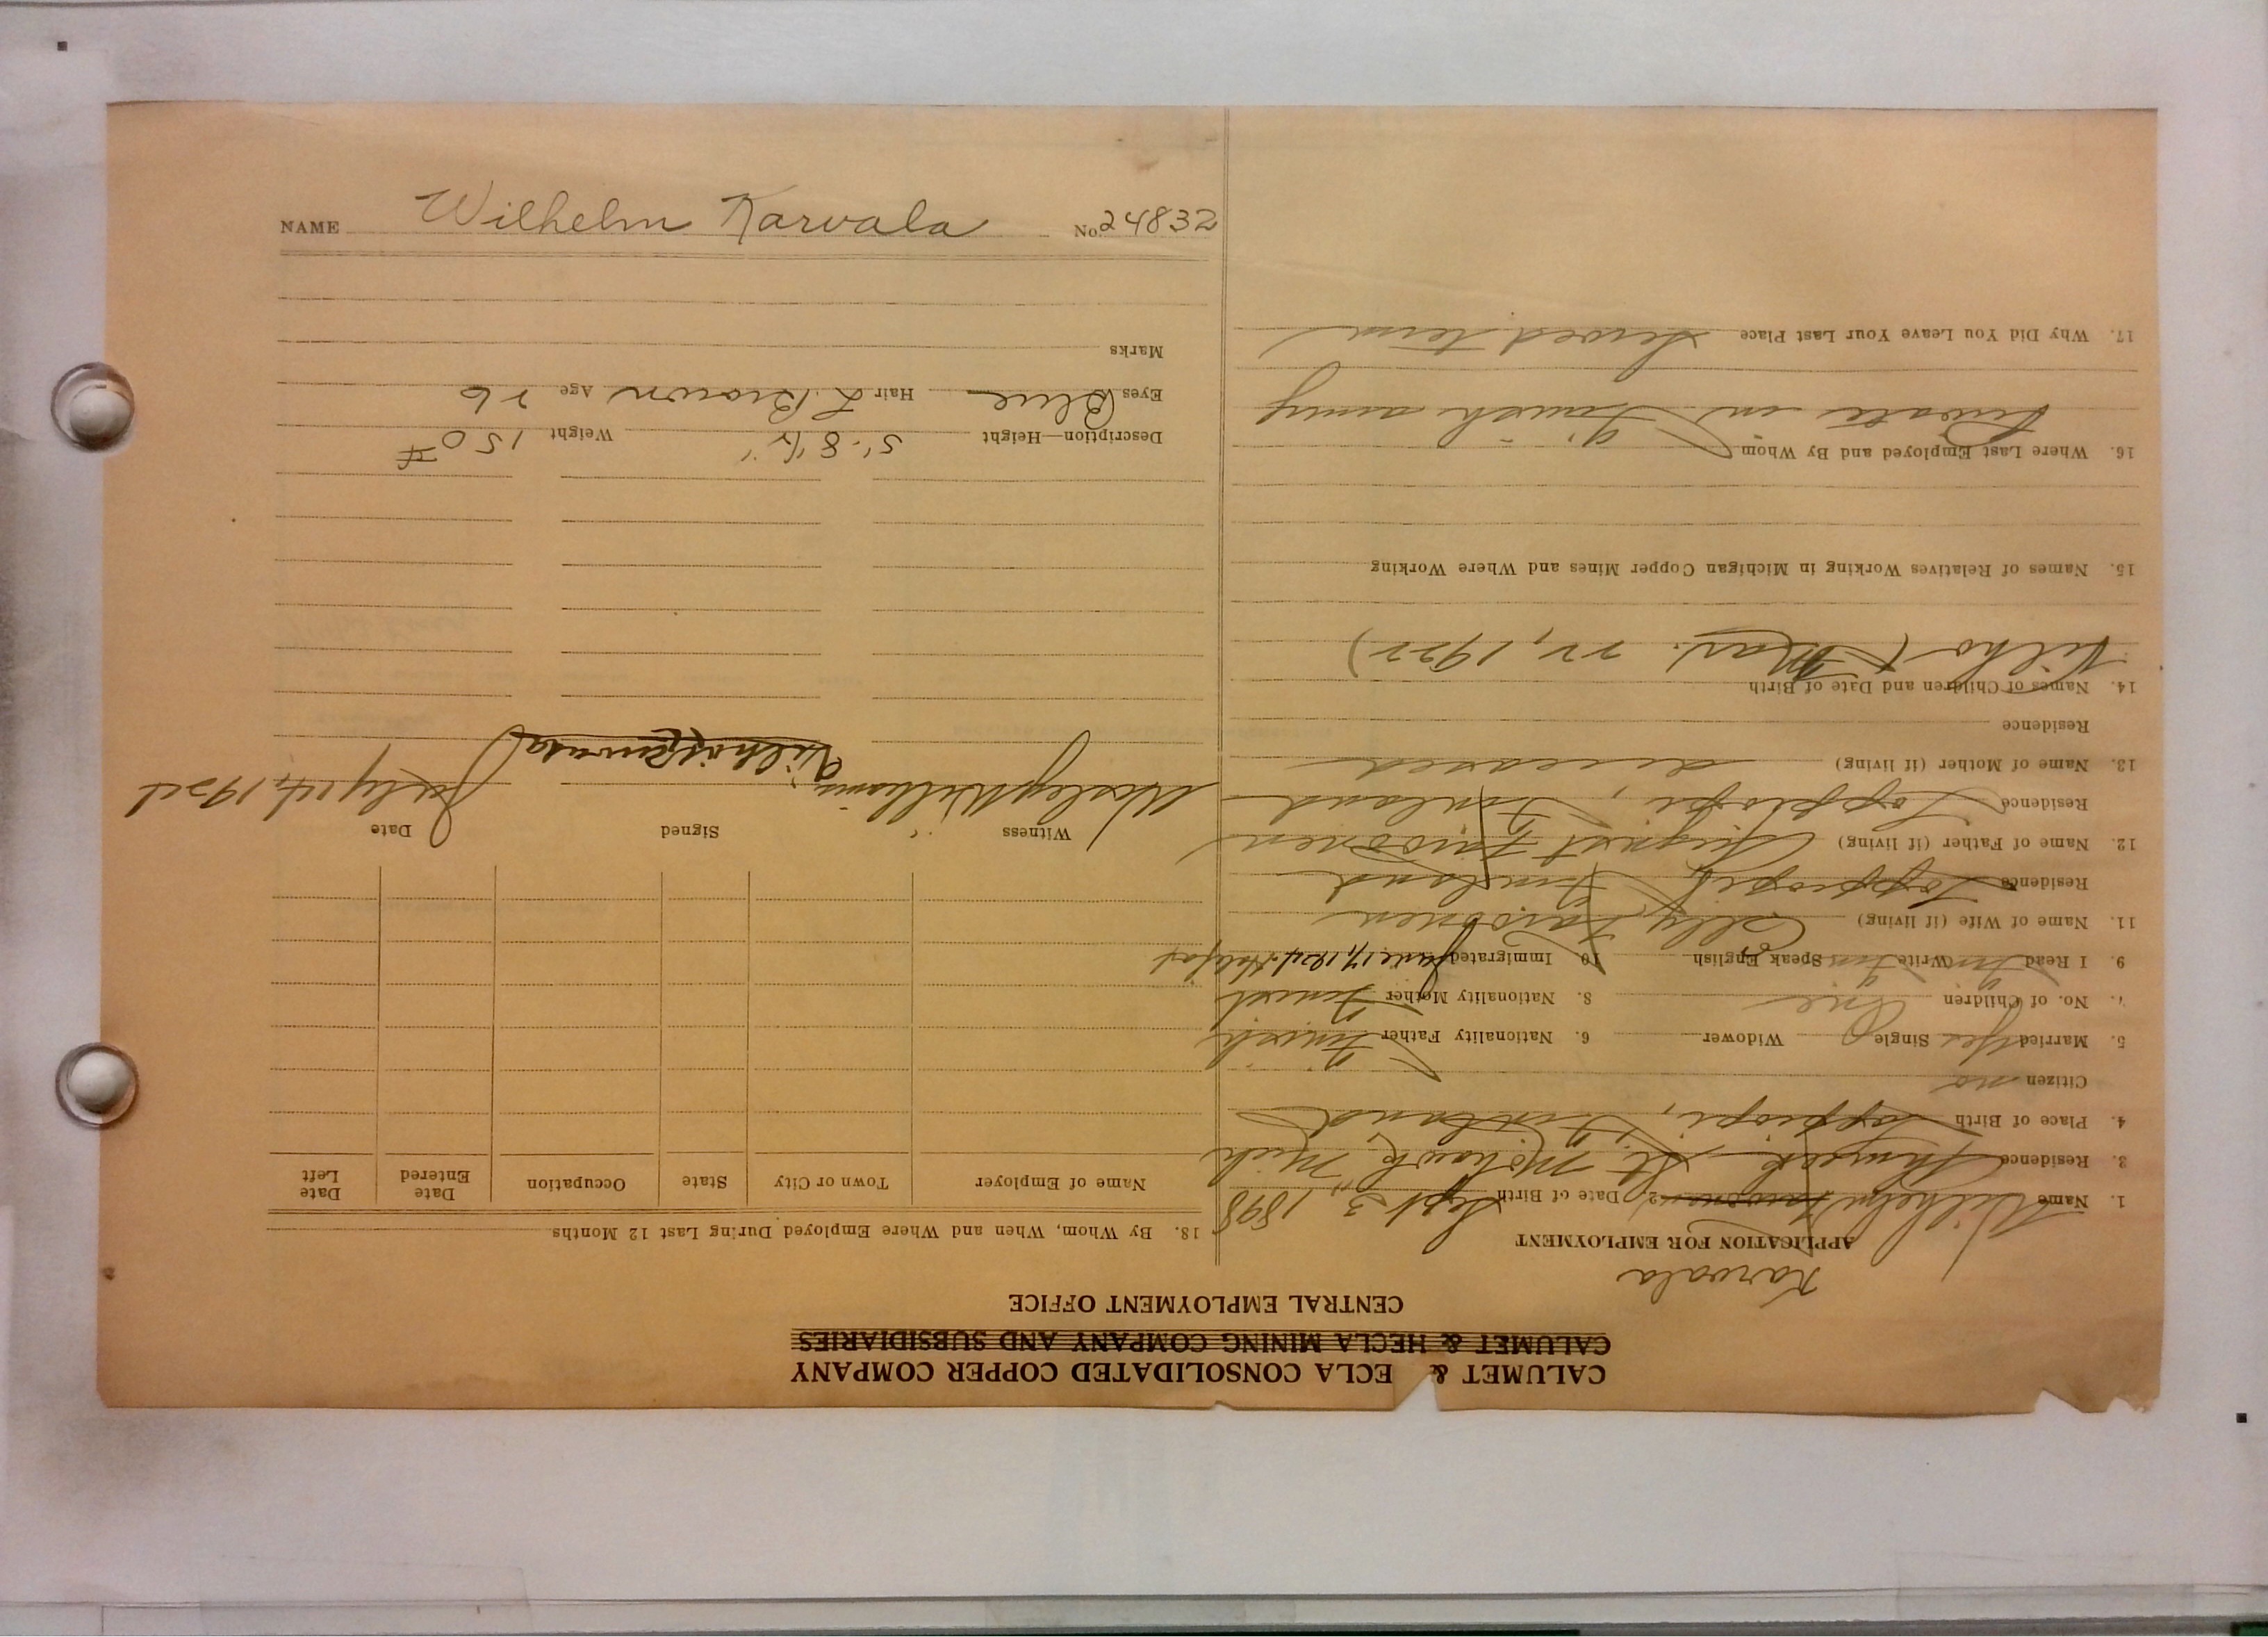 NAME Wilhelm Karvala No. 24832
CALUMET & ECLA CONSOLIDATED COPPER COMPANY
CALUMET & HECLA MINING COMPANY AND SUBSIDIARIES
CENTRAL EMPLOYMENT OFFICE
Karvala
APPLICATION FOR EMPLOYMENT
1. Name Wilhelm 2. Date of Birth Sept 3, 1898
3. Residence St. Mohawk, Mich
4. Place of Birth Loppiopi, Finland
Citizen no
5. Married yes Single Widower 6. Nationality Father Finnish
7. No. of Children One 8. Nationality Mother Finnish
9. I Read Write Speak English 10 Immigrated June 17, 1924 Halifax
11. Name of Wife (if living)
Residence Loppiopi, Finland
12. Name of Father (if living) August
Residence Loppiopi, Finland
13. Name of Mother (if living) deceased
Residence
14. Names of Children and Date of Birth
Vilho (Mar. 22, 1922)
15. Names of Relatives Working in Michigan Copper Mines and Where Working
16. Where Last Employed and By Whom
Private in Finnish army
17. Why Did You Leave Your Last Place Served term
18. By Whom, When and Where Employed During Last 12 Months
Name of Employer Town or City State Occupation Date Entered Date Left
Witness Signed Date
Wesley Williams July 14, 1924
Description—Height 5'-8½" Weight 150#
Eyes Blue Hair L. Brown Age 26
Marks